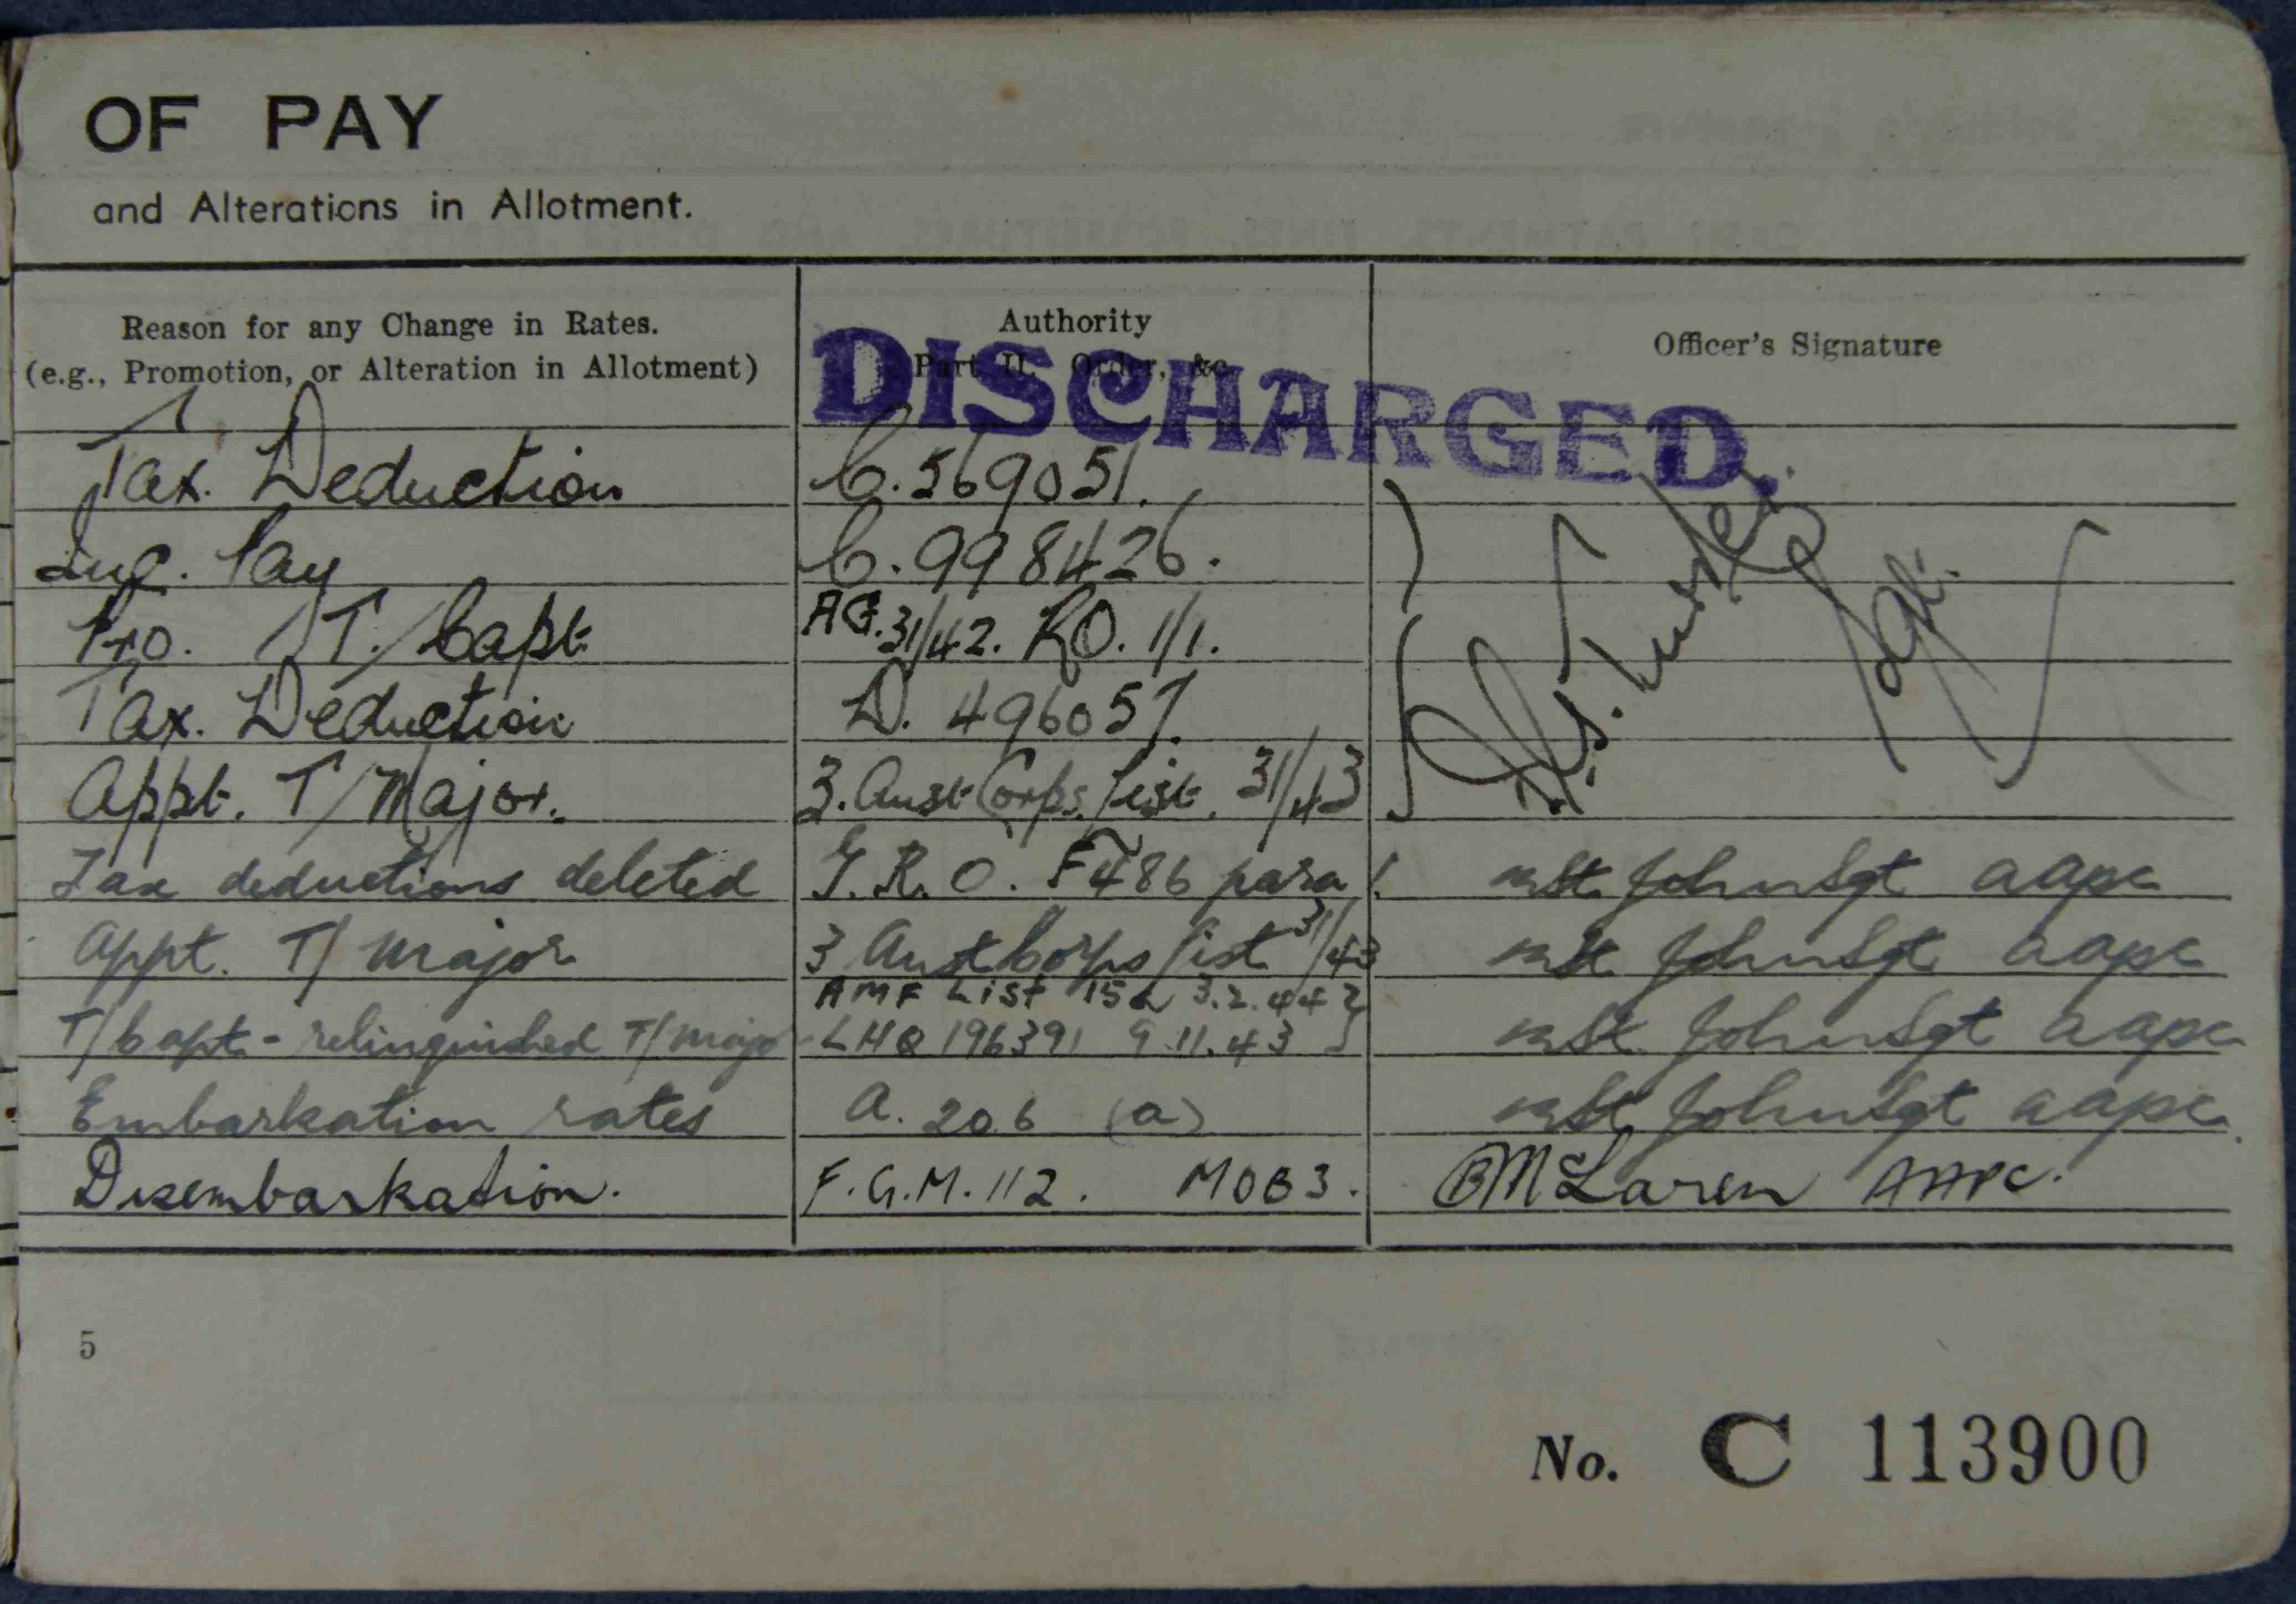 OF PAY
and Alterations in Allotment.
Reason for any Change in Rates.
(e.g., Promotion, or Alteration in Allotment)
Authority
Part II. Order, &c.
Officer's Signature
DISCHARGED.
Tax. Deduction C.569051.
Pay C.998426.
Pro. T/Capt AG.31/42. RO. 1/1.
Tax. Deduction D. 496057.
Sgt.
Appt. T/Major. 3.Aust Corps. List. 31/43
Tax deductions deleted G.R.O. F486 para 1. St John Sgt aapc
Appt. T/ Major 3 Aust Corps list 31/43 St John Sgt aapc
AMF List 152 3.2.44
T/Capt - relinquished T/Major LHQ 196391 9.11.43 St John Sgt aapc
Embarkation rates A. 206 (a) St John Sgt aapc
Disembarkation. F.G.M.112. MOB3. BMcLaren AAPC.
5
No. C 113900